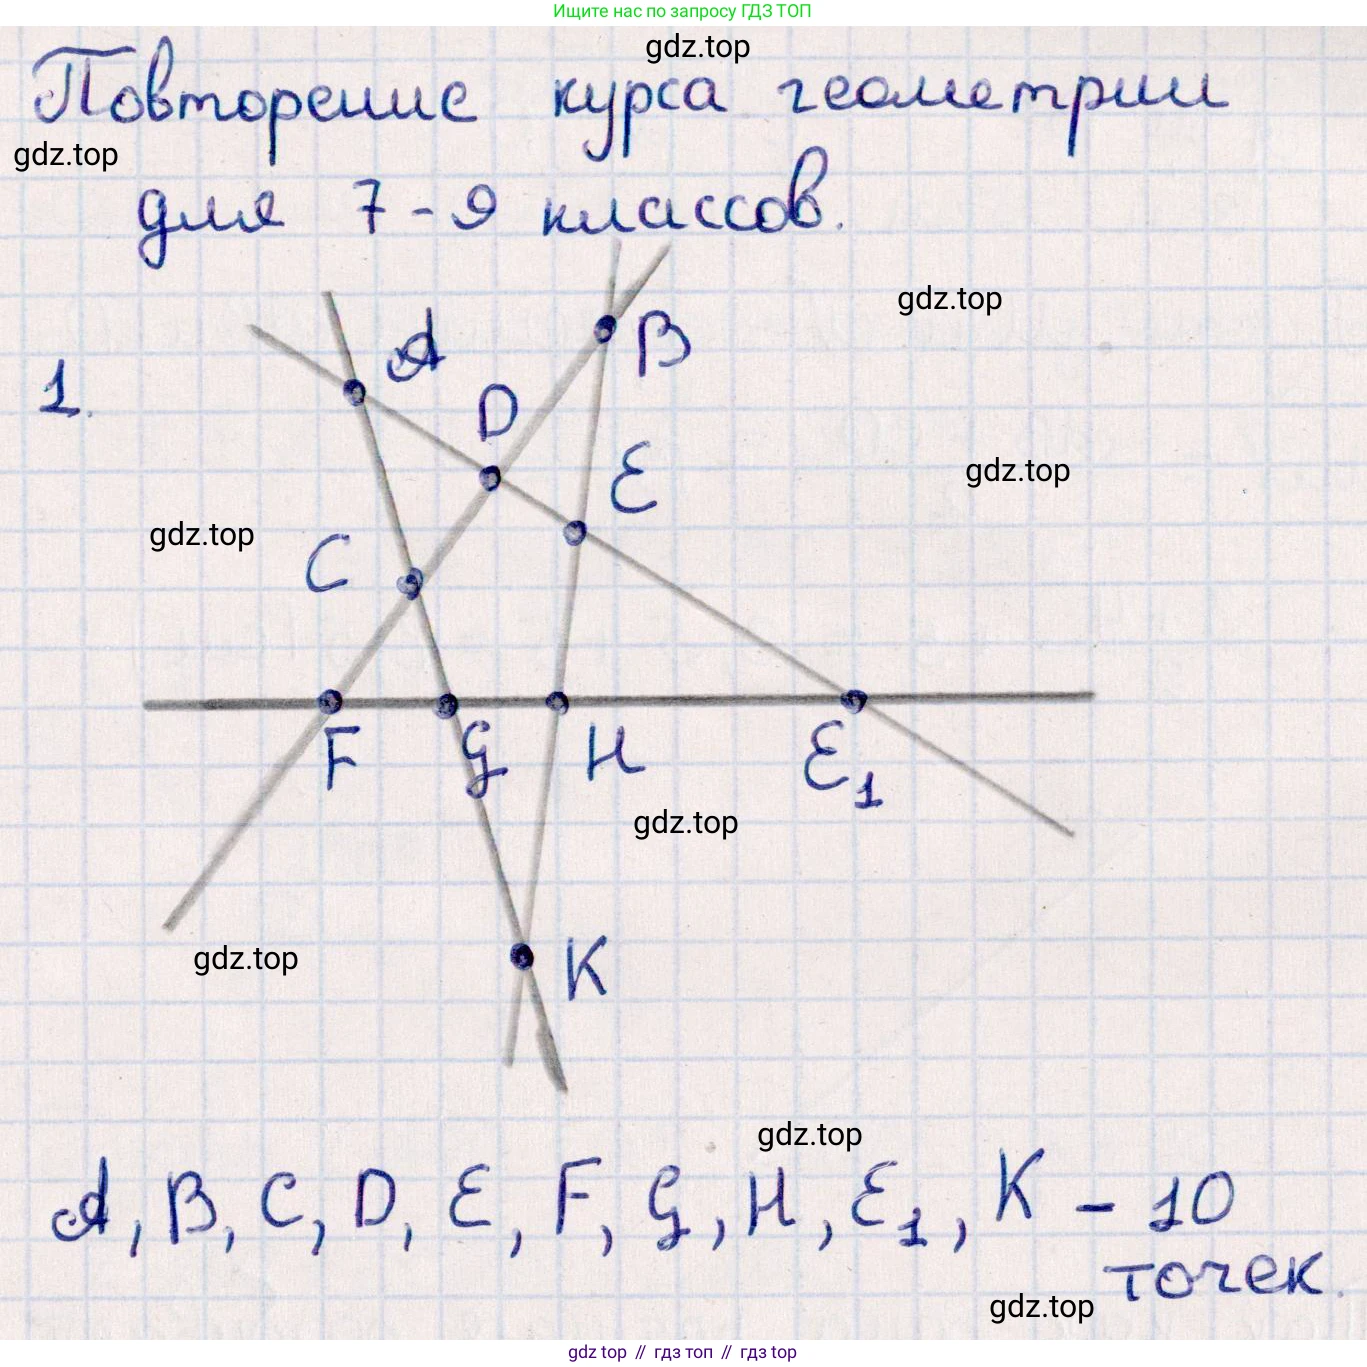 Ищите нас по запросу ГДЗ ТОП
gdz.top
Повторение курса геометрии
gdz.top
для 7-9 классов.
gdz.top
1.
A
B
D
E
gdz.top
gdz.top
C
F
G
H
E₁
gdz.top
gdz.top
K
gdz.top
A, B, C, D, E, F, G, H, E₁, K - 10
точек.
gdz.top
gdz top // гдз топ // гдз top